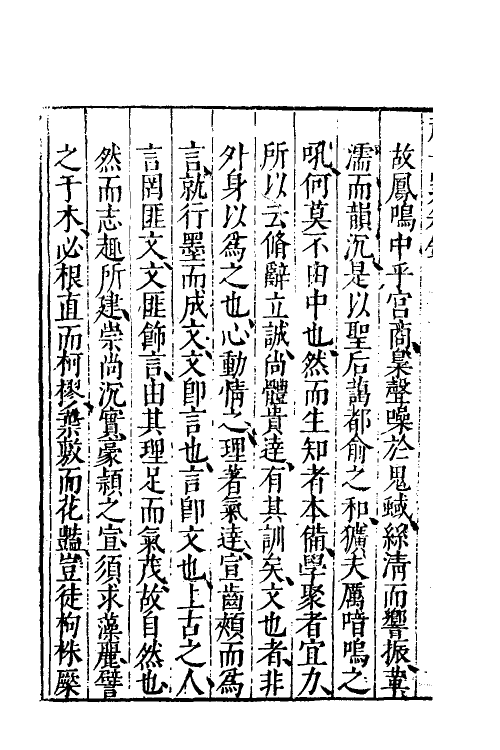 故鳳鳴中乎宮商梟聲噪於鬼蜮絲清而響振葦
濡而韻沉是以聖后藹都俞之和獷夫厲喑嗚之
吼何莫不由中也然而生知者本備學聚者宜力
所以云脩辭立誠尚體貴達有其訓矣文也者非
外身以為之也心動情之理著氣達宣齒頰而為
言就行墨而成文文即言也言即文也上古之人
言罔匪文文匪飾言由其理足而氣茂故自然也
然而志趣所建崇尚沉實豪穎之宣須求藻麗譬
之于木必根直而柯樛蘂蔌而花豔豈徒枸株檿